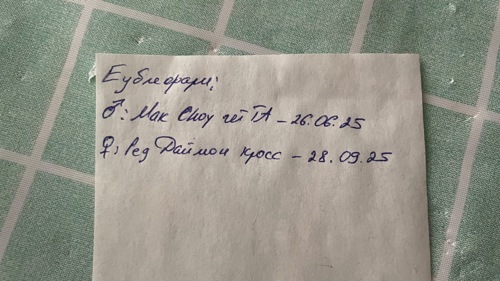 Еублефары:
♂: Мак Сноу гет ТА – 26.06.25
♀: Ред Даймон кросс – 28.09.25